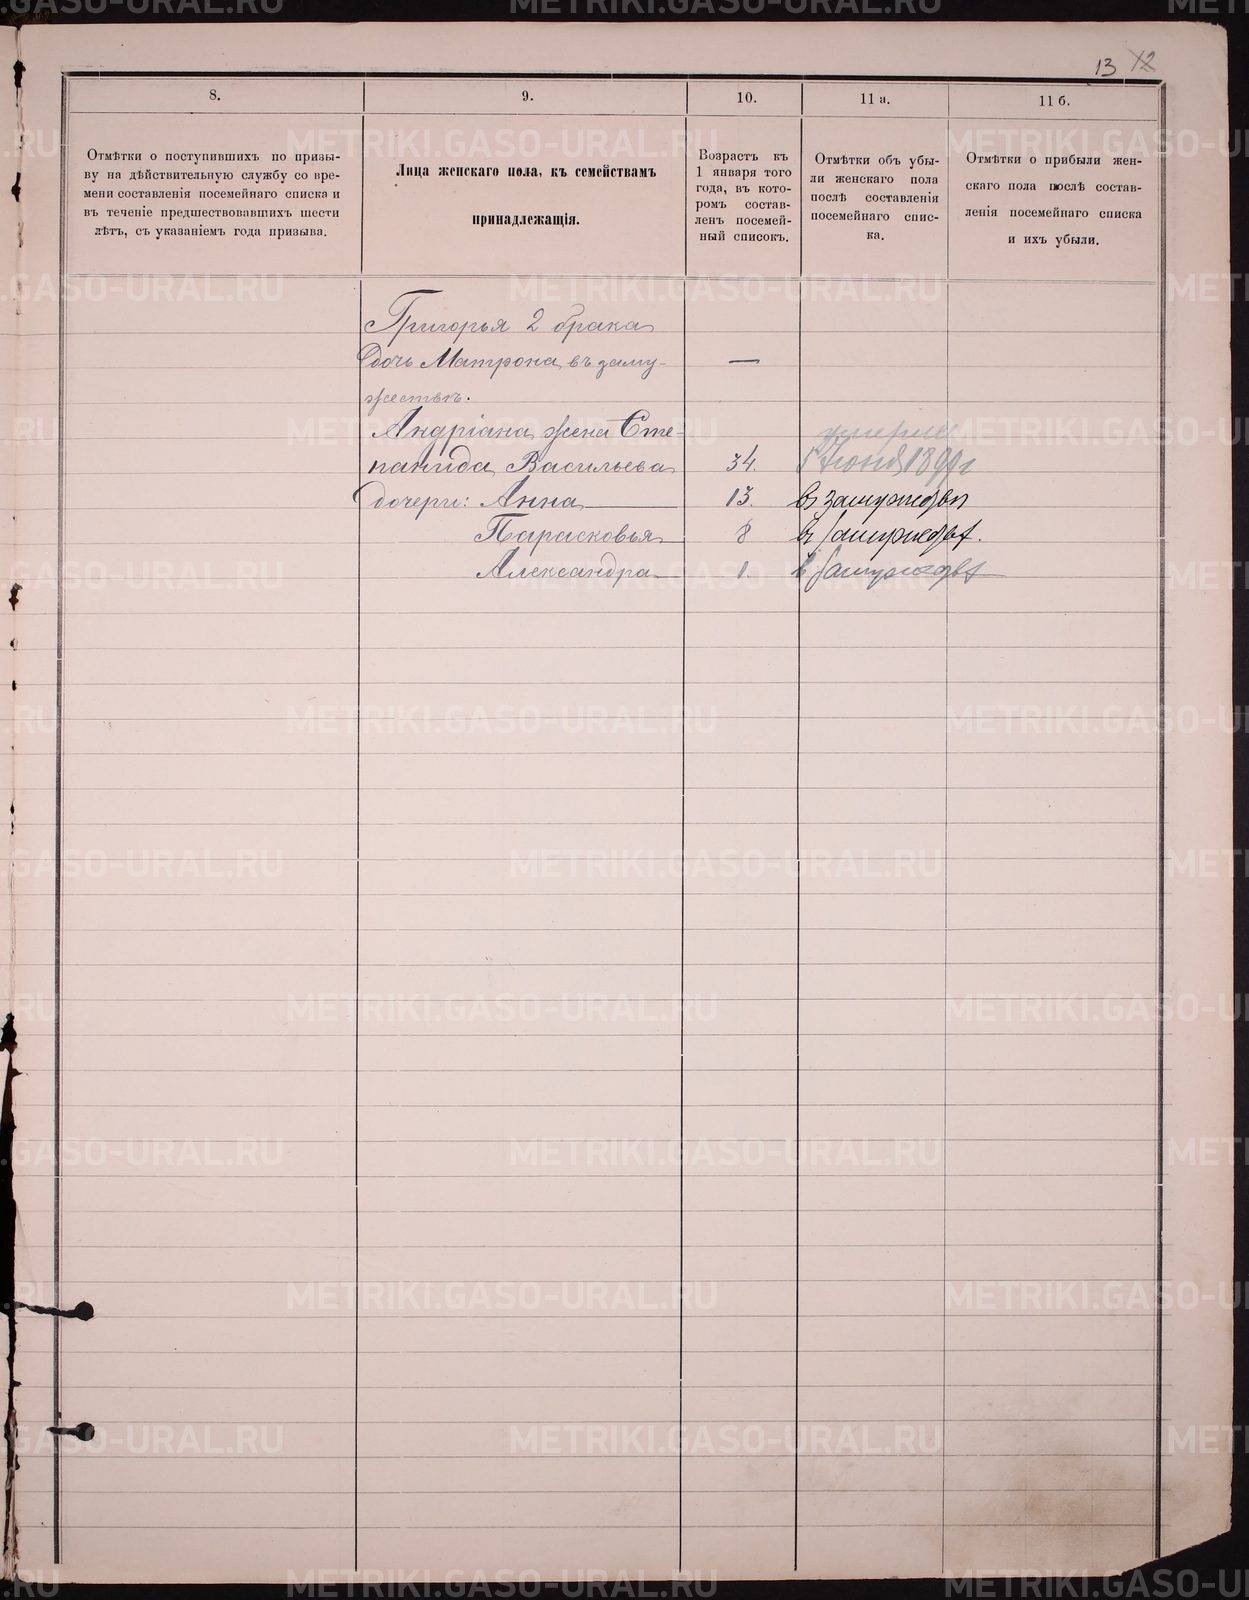 13 12
8.
9.
10.
11 а.
11 б.
Отмѣтки о поступившихъ по призы-
ву на дѣйствительную службу со вре-
мени составленія посемейнаго списка и
въ теченіе предшествовавшихъ шести
лѣтъ, съ указаніемъ года призыва.
Лица женскаго пола, къ семействамъ
принадлежащія.
Возрастъ къ
1 января того
года, въ кото-
ромъ состав-
ленъ посемей-
ный списокъ.
Отмѣтки объ убы-
ли женскаго пола
послѣ составленія
посемейнаго спис-
ка.
Отмѣтки о прибыли жен-
скаго пола послѣ состав-
ленія посемейнаго списка
и ихъ убыли.
Григорья 2 брака
дочь Матрона въ заму- —
жествѣ.
Андріана жена Сте- умерла
панида Васильева 34. 5 Іюня
дочери: Анна 13. въ замужествѣ
Парасковья 8 въ замужествѣ.
Александра 1. въ замужествѣ
METRIKI.GASO-URAL.RU